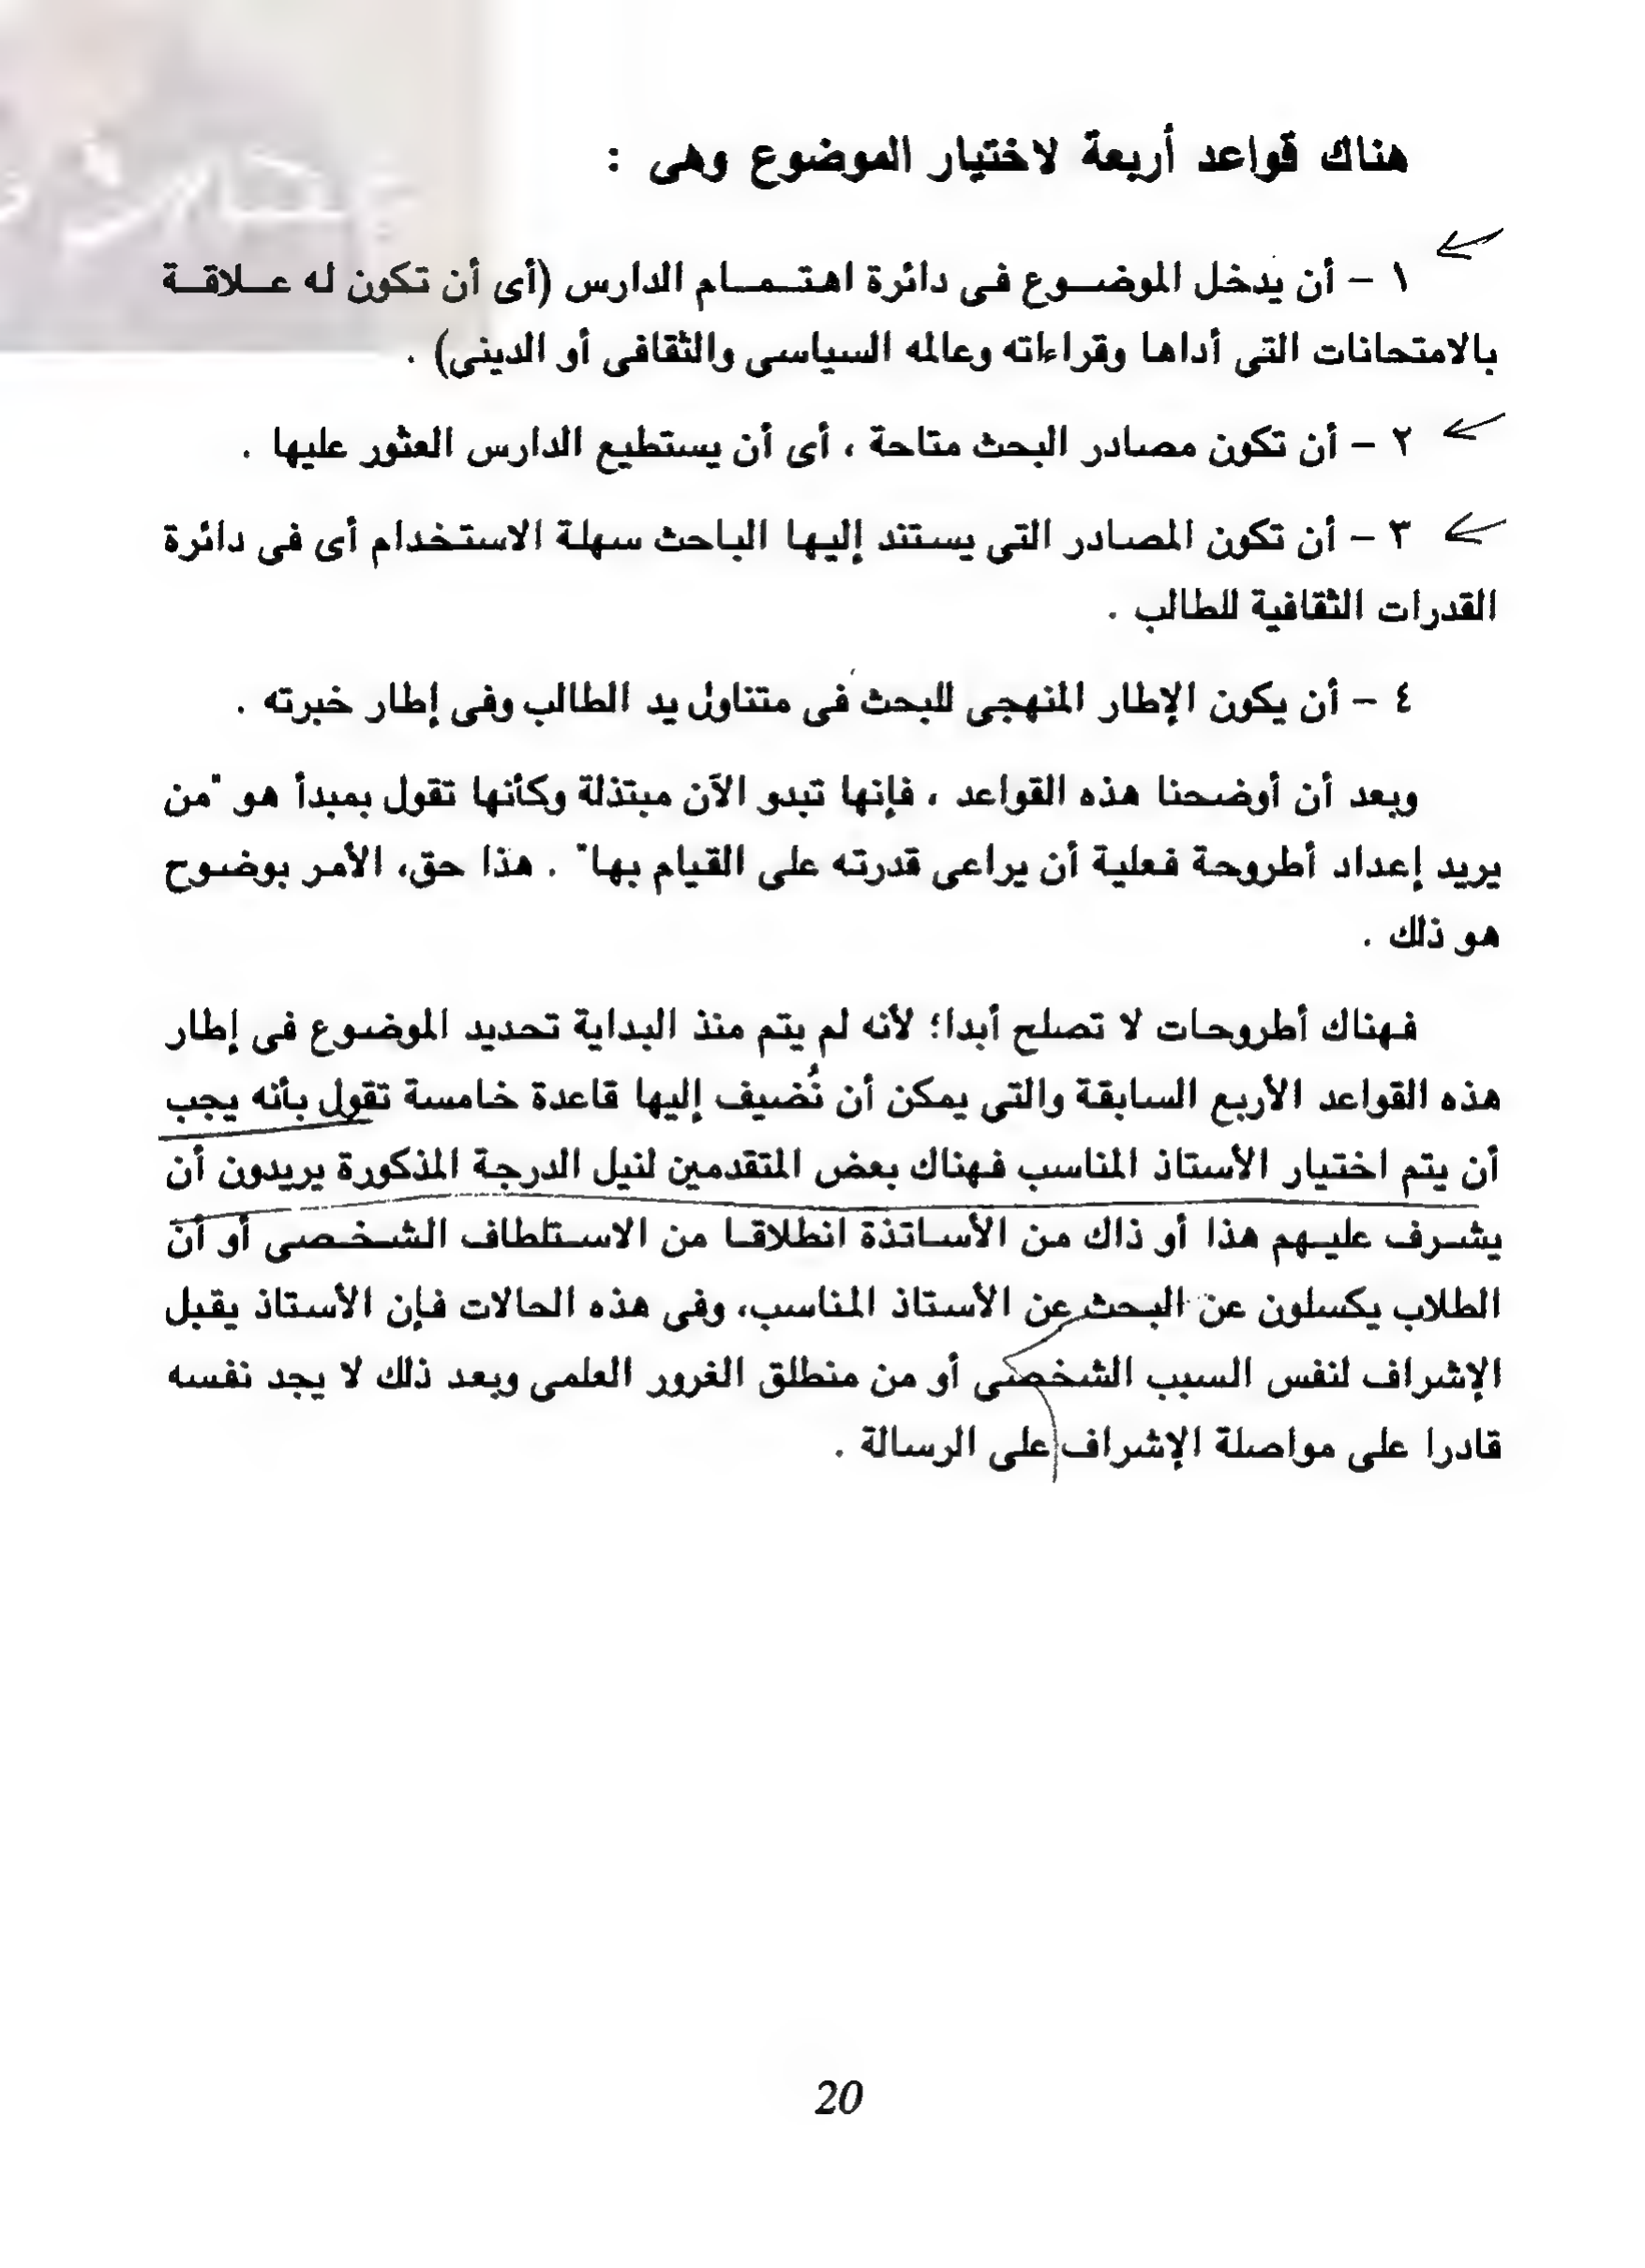 هناك قواعد أربعة لاختيار الموضوع وهى :
١ - أن يدخل الموضوع فى دائرة اهتمام الدارس (أى أن تكون له علاقة
بالامتحانات التى أداها وقراءاته وعالمه السياسى والثقافى أو الدينى) .
٢ - أن تكون مصادر البحث متاحة ، أى أن يستطيع الدارس العثور عليها .
٣ - أن تكون المصادر التى يستند إليها الباحث سهلة الاستخدام أى فى دائرة
القدرات الثقافية للطالب .
٤ - أن يكون الإطار المنهجى للبحث فى متناول يد الطالب وفى إطار خبرته .
وبعد أن أوضحنا هذه القواعد ، فإنها تبدو الآن مبتذلة وكأنها تقول بمبدأ هو "من
يريد إعداد أطروحة فعلية أن يراعى قدرته على القيام بها" . هذا حق، الأمر بوضوح
هو ذلك .
فهناك أطروحات لا تصلح أبدا؛ لأنه لم يتم منذ البداية تحديد الموضوع فى إطار
هذه القواعد الأربع السابقة والتى يمكن أن نُضيف إليها قاعدة خامسة تقول بأنه يجب
أن يتم اختيار الأستاذ المناسب فهناك بعض المتقدمين لنيل الدرجة المذكورة يريدون أن
يشرف عليهم هذا أو ذاك من الأساتذة انطلاقا من الاستلطاف الشخصى أو أن
الطلاب يكسلون عن البحث عن الأستاذ المناسب، وفى هذه الحالات فإن الأستاذ يقبل
الإشراف لنفس السبب الشخصى أو من منطلق الغرور العلمى وبعد ذلك لا يجد نفسه
قادرا على مواصلة الإشراف على الرسالة .
20